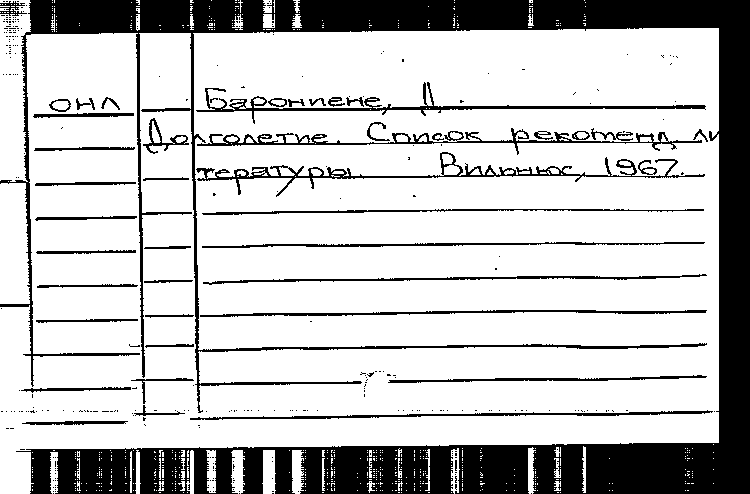 ОНЛ Барониене, Д.
Долголетие. Список рекоменд. ли
тературы. Вильнюс, 1967.